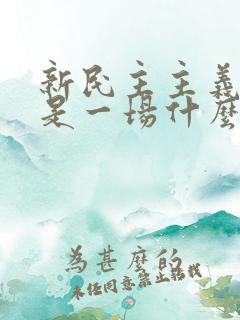 新民主主義
是一場什麼
為甚麼的
未任同意禁止轉載